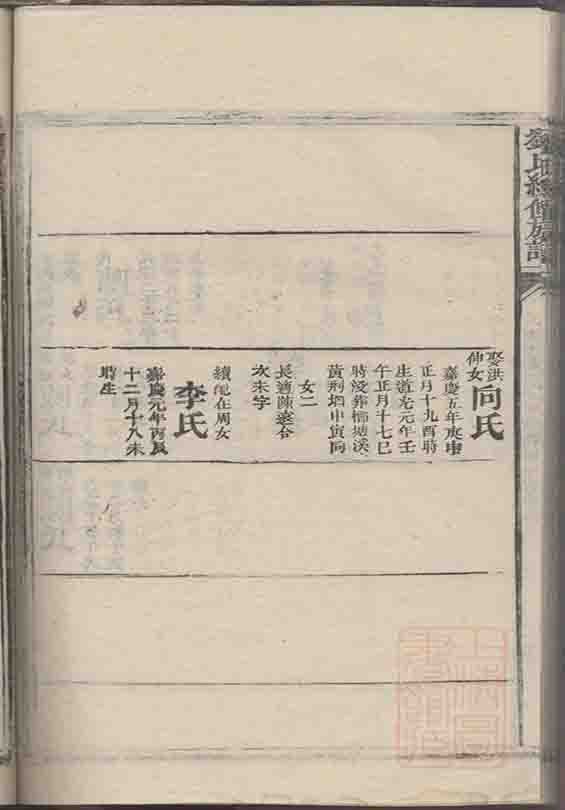 氏續修族譜
娶洪
伸女
向氏
嘉慶五年庚申
正月十九酉時
生道光元年壬
午正月十七巳
時歿葬
黃荊堋申寅向
女二
長適陳
次未字
續配在周女
李氏
嘉慶元年丙辰
十二月十八未
時生